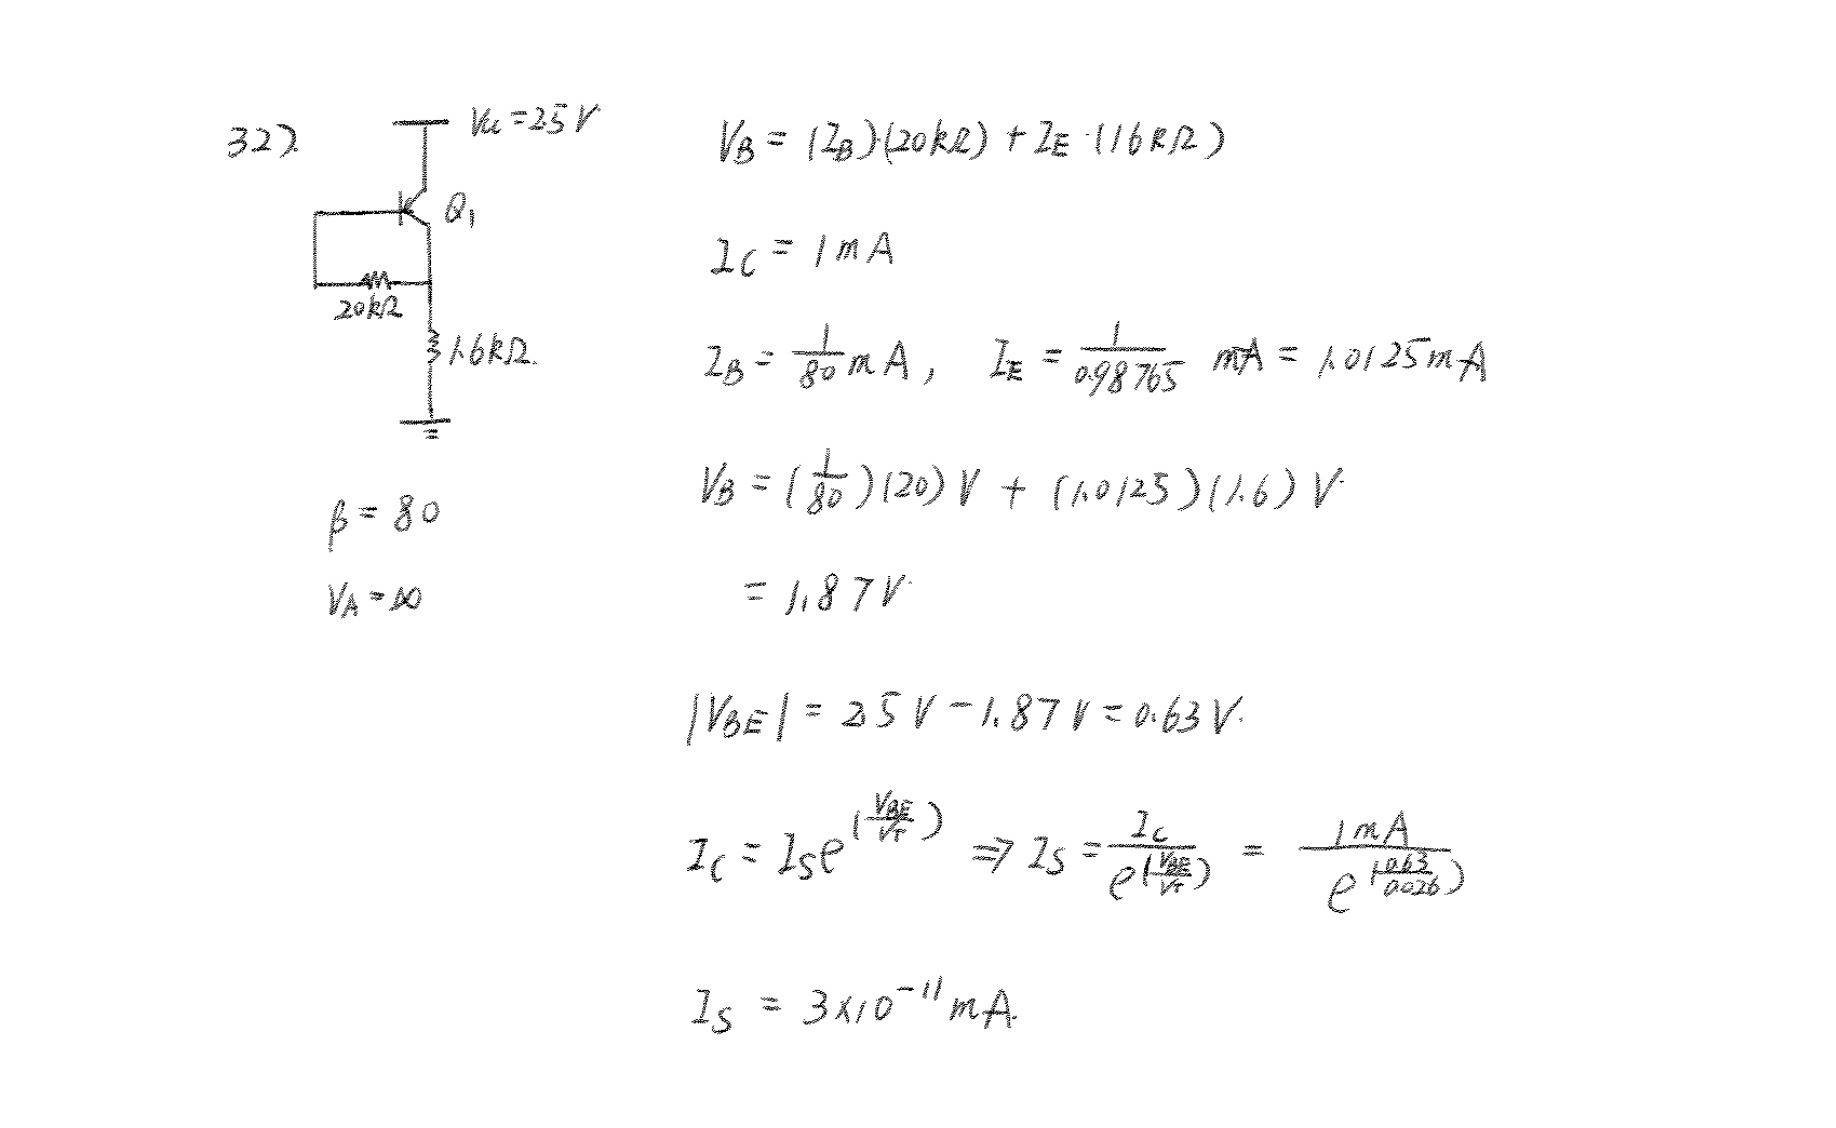 32).
Vcc = 2.5 V
Q1
20kΩ
1.6kΩ.
β = 80
VA = ∞
VB = (IB)·(20kΩ) + IE·(1.6kΩ)
IC = 1 mA
IB = 1/80 mA, IE = 1/0.98765 mA = 1.0125 mA
VB = (1/80)(20) V + (1.0125)(1.6) V
= 1.87 V
|VBE| = 2.5 V - 1.87 V = 0.63 V.
IC = IS e^(VBE/VT) ⇒ IS = IC/e^(VBE/VT) = 1 mA/e^(0.63/0.026)
IS = 3×10^-11 mA.